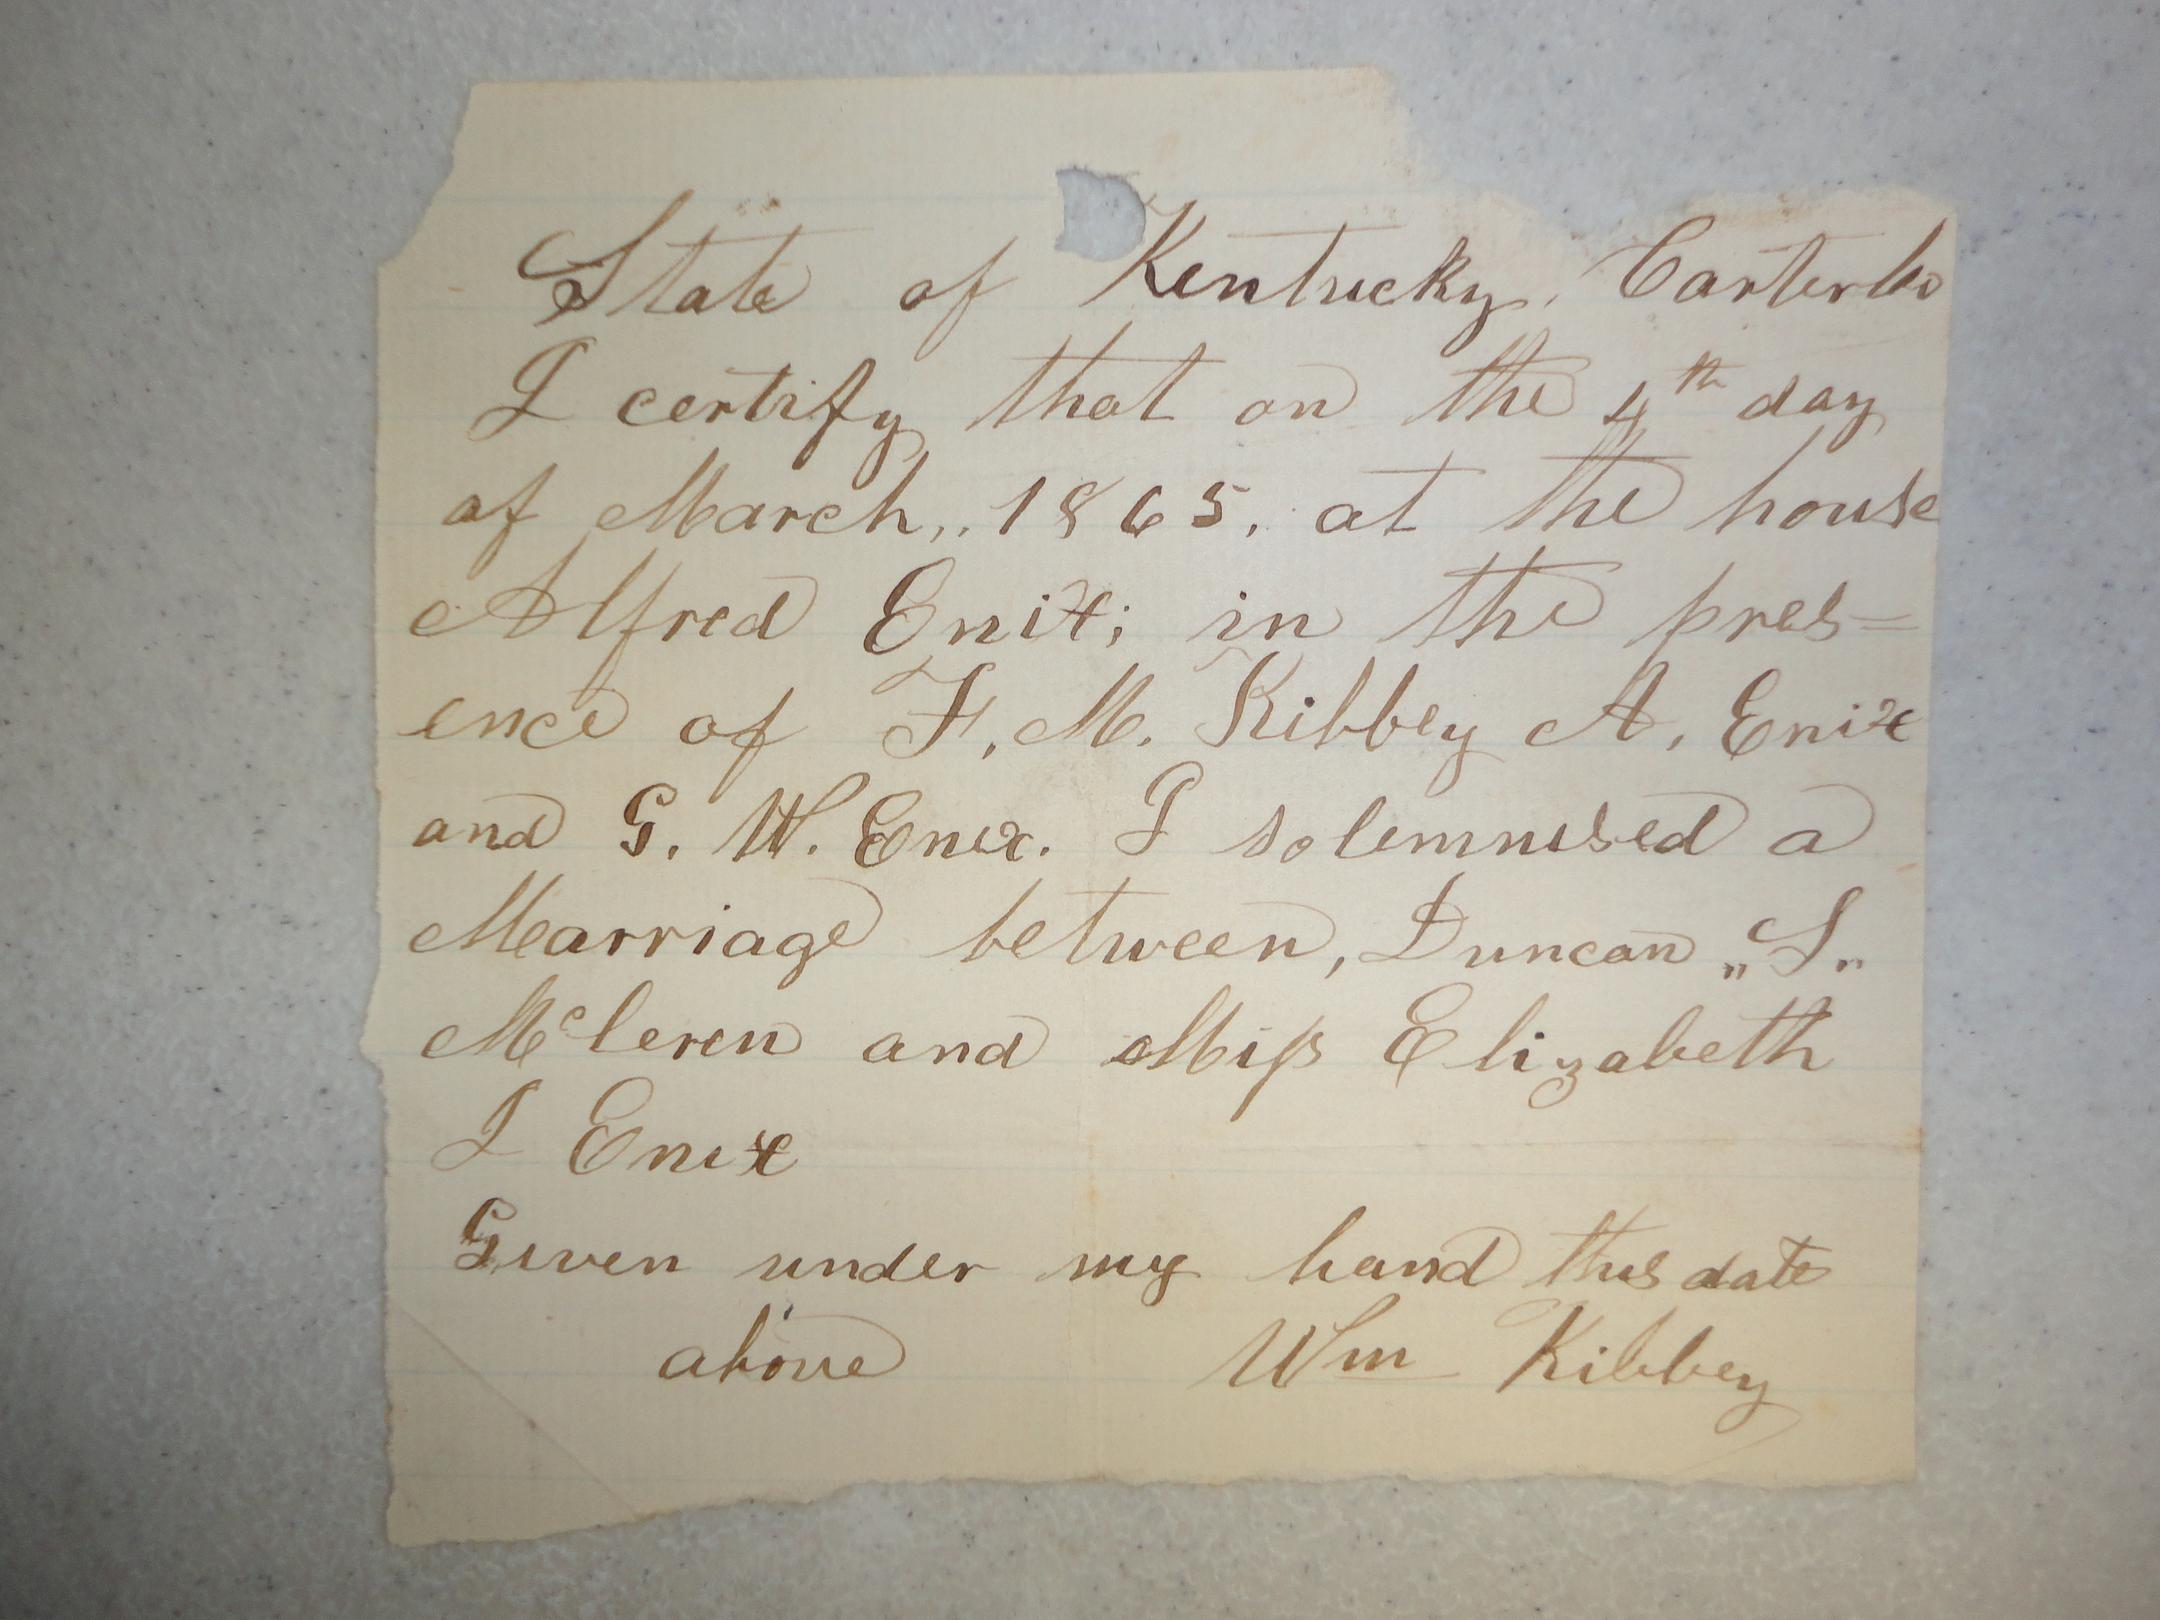 State of Kentucky, Carter Co
I certify that on the 4th day
of March,, 1865, at the house
Alfred Enix; in the pres=
ence of F. M. Kibbey A. Enix
and G. W. Enix. I solemnised a
Marriage between, Duncan „S„
McLeren and Miss Elizabeth
I Enix
Given under my hand this date
above Wm Kibbey